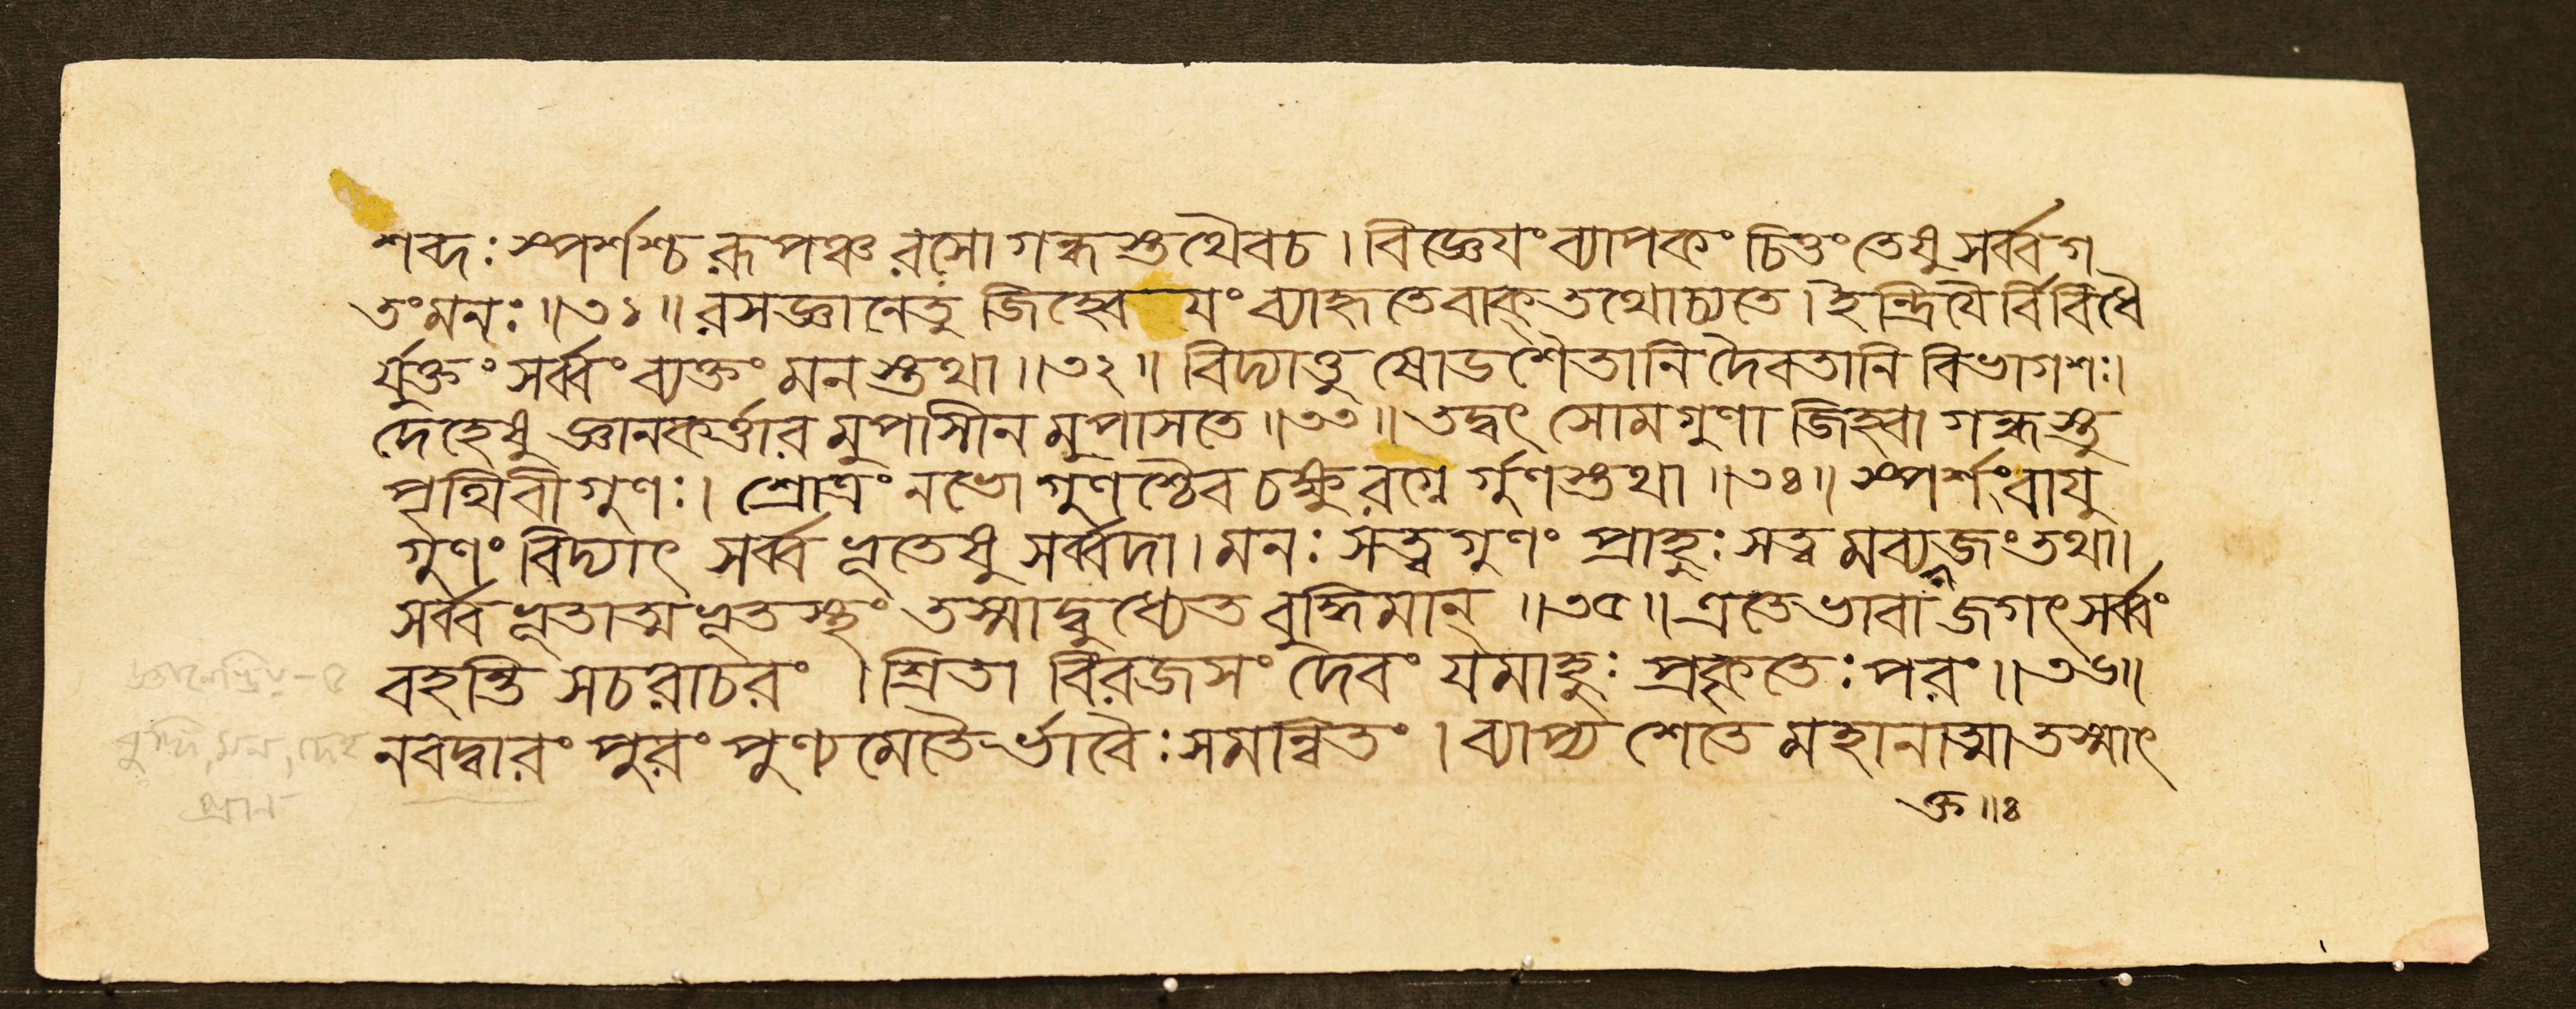 শব্দঃ স্পর্শশ্চ রূপঞ্চ রসো গন্ধস্তথৈবচ। বিজ্ঞেয়ং ব্যাপকং চিত্তং তেষু সর্ব্বগ
তংমনঃ॥৩১॥ রসজ্ঞানেতু জিহ্বেয়ং ব্যাহৃতেবাক্তথোচ্যতে। ইন্দ্রিয়ৈর্বিবিধৈ
র্যুক্তং সর্ব্বং ব্যক্তং মনস্তথা॥৩২॥ বিদ্যাত্তু ষোডশৈতানি দৈবতানি বিভাগশঃ।
দেহেষু জ্ঞানকর্ত্তারমুপাসীনমুপাসতে॥৩৩॥ তদ্বৎ সোমগুণা জিহ্বা গন্ধস্তু
পৃথিবীগুণঃ। শ্রোত্রং নভোগুণশ্চৈব চক্ষুরগ্নের্গুণস্তথা॥৩৪॥ স্পর্শংবায়ু
র্গুণং বিদ্যাৎ সর্ব্বভূতেষু সর্ব্বদা। মনঃ সত্ত্বগুণং প্রাহুঃ সত্ত্বমব্যক্তজংতথা।
সর্ব্বভূতাত্মভূতস্থং তস্মাদ্বুধ্যেত বুদ্ধিমান্॥৩৫॥ এতেভাবা জগৎসর্ব্বং
বহন্তি সচরাচরং। শ্রিতা বিরজসং দেবং যমাহুঃ প্রকৃতেঃ পরং॥৩৬॥
নবদ্বারং পুরং পুণ্যমেতৈর্ভাবৈঃ সমান্বিতং। ব্যাপ্য শেতে মহানাত্মা তস্মাৎ
ক্ত॥৪
জ্ঞানেন্দ্রিয়-৫
বুদ্ধি, মন, দেহ